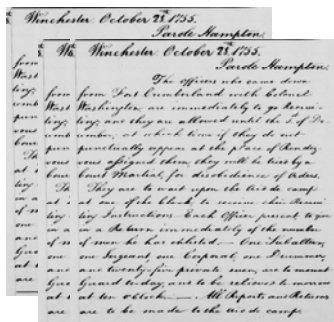 Winchester: October 28th 1755.
Parole Hampton.
Winchester: October 28th 1755.
Parole Hampton.
The officers who came down
from Fort Cumberland with Colonel
Washington, are immediately to go Recrui-
ting; and they are allowed until the 1st of De-
cember, at which time if they do not
punctually appear at the place of Rendez-
vous assigned them, they will be tried by a
Court Martial, for disobedience of Orders.
They are to wait upon the Aid de camp
at one of the clock to receive their Recrui-
ting Instructions. Each Officer present to give
in a Return immediately of the number
of men he has enlisted. — One Subaltern,
one Sergeant, one Corporal, one Drummer,
and twenty-five private men, are to mount
Guard to-day, and to be relieved to-morrow
at ten o'clock. — All Reports and Returns
are to be made to the Aid de camp.